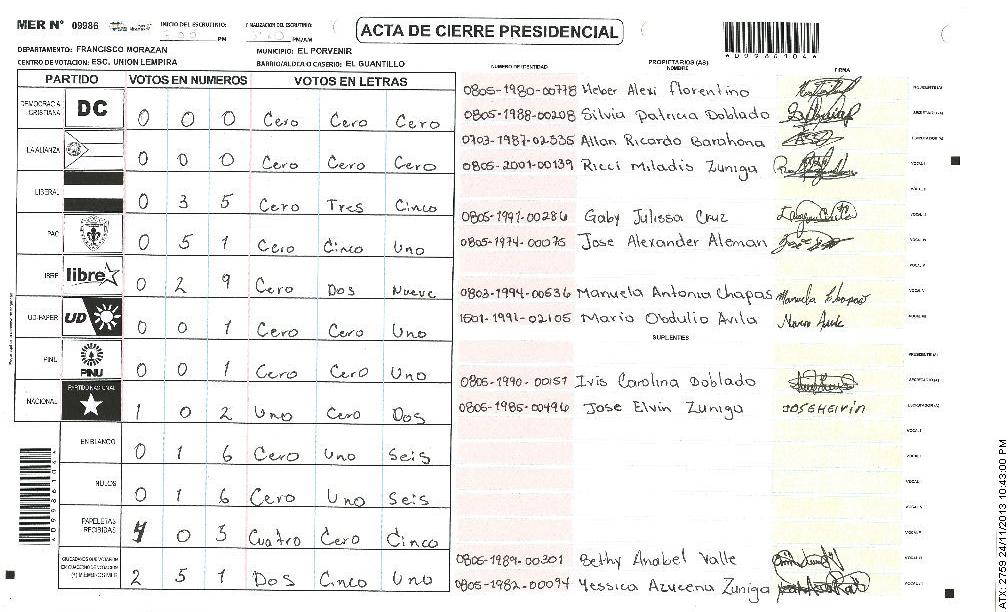 MER N° 09986
INICIO DEL ESCRUTINIO:
PM
FINALIZACION DEL ESCRUTINIO:
PM/AM
ACTA DE CIERRE PRESIDENCIAL
A09986104
DEPARTAMENTO: FRANCISCO MORAZAN
MUNICIPIO: EL PORVENIR
CENTRO DE VOTACION: ESC. UNION LEMPIRA
BARRIO/ALDEA O CASERIO: EL GUANTILLO
PARTIDO VOTOS EN NUMEROS VOTOS EN LETRAS
DEMOCRACIA CRISTIANA DC 0 0 0 Cero Cero Cero
LA ALIANZA 0 0 0 Cero Cero Cero
LIBERAL 0 3 5 Cero Tres Cinco
PAC 0 5 1 Cero Cinco Uno
LIBRE libre 0 2 9 Cero Dos Nueve
UD-FAPER UD 0 0 1 Cero Cero Uno
PINU PINU 0 0 1 Cero Cero Uno
NACIONAL PARTIDO NACIONAL 1 0 2 Uno Cero Dos
EN BLANCO 0 1 6 Cero Uno Seis
NULOS 0 1 6 Cero Uno Seis
PAPELETAS RECIBIDAS 4 0 3 Cuatro Cero Cinco
CIUDADANOS QUE VOTARON EN CUADERNO DE VOTACION (+) MIEMBROS MER 2 5 1 Dos Cinco Uno
NUMERO DE IDENTIDAD
PROPIETARIOS (AS)
NOMBRE
FIRMA
0805-1980-00778 Heber Alexi Florentino
0805-1988-00208 Silvia Patricia Doblado
0703-1987-02535 Allan Ricardo Barahona
0805-2001-00139 Ricci Miladis Zuniga
0805-1991-00286 Gaby Julissa Cruz
0805-1974-00075 Jose Alexander Aleman
0803-1994-00536 Manuela Antonia Chapas
1501-1991-02105 Mario Obdulio Avila
SUPLENTES
0805-1990-00151 Ivis Carolina Doblado
0805-1985-00496 Jose Elvin Zuniga
0805-1989-00301 Bethy Anabel Valle
0805-1982-00094 Yessica Azucena Zuniga
A09986104
ATX-2759 24/11/2013 10:43:00 PM